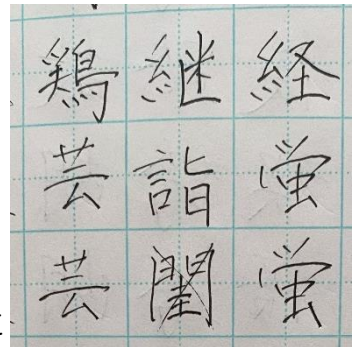 経蛍蛍
継詣閨
鶏芸芸